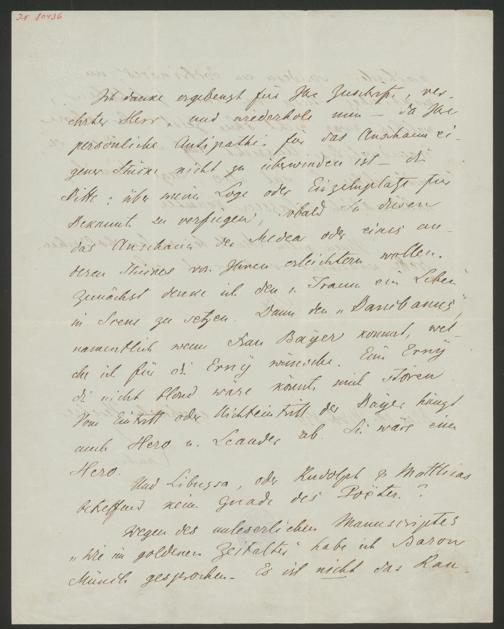 I.N. 80436
Ich danke ergebenst für Ihre Zuschrift, ver-
ehrter Herr, und wiederhole nun – da Ihre
persönliche Antipathie für das Anschauen ei-
gener Stücke nicht zu überwinden ist – die
Bitte: über meine Loge oder Einzelnplätze für
Bekannte zu verfügen, sobald Sie diesen
das Anschauen der Medea oder eines an-
deren Stückes von Ihnen erleichtern wollen.
Zunächst denke ich den „Traum ein Leben"
in Scene zu setzen. Dann den „Bancbanus",
namentlich wenn Frau Bayer kommt, wel-
che ich für die Erny wünsche. Eine Erny
die nicht blond wäre könnte mich stören
Vom Eintritt oder Nichteintritt der Bayer hängt
auch Hero u. Leander ab. Sie wäre eine
Hero.
Und Libussa, oder Rudolph & Matthias
betreffend keine Gnade des Poëten?
Wegen des unleserlichen Manuscriptes
„Wie im goldenen Zeitalter" habe ich Baron
Münch gesprochen. Es ist nicht das Ran-